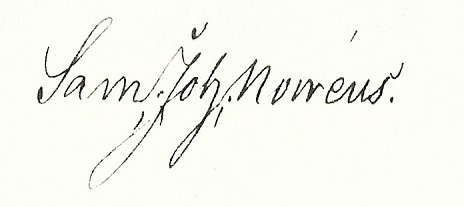 Sam. Joh. Norréus.